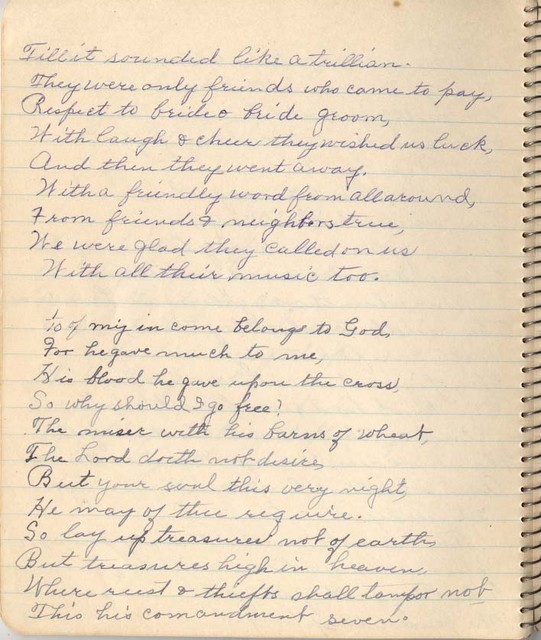 Till it sounded like a trillian.
They were only friends who came to pay,
Respect to bride & bride groom,
With laugh & cheer they wished us luck,
And then they went away.
With a friendly word from all around,
From friends & neighbors true,
We were glad they called on us
With all their music too.
1/10 of my in come belongs to God,
For he gave much to me,
His blood he gave upon the cross,
So why should I go free?
The miser with his barns of wheat,
The Lord doeth not desire,
But your soul this very night,
He may of thee require.
So lay up treasures not of earth,
But treasures high in heaven,
Where rust & thiefts shall tampor not
This his comandment seven.